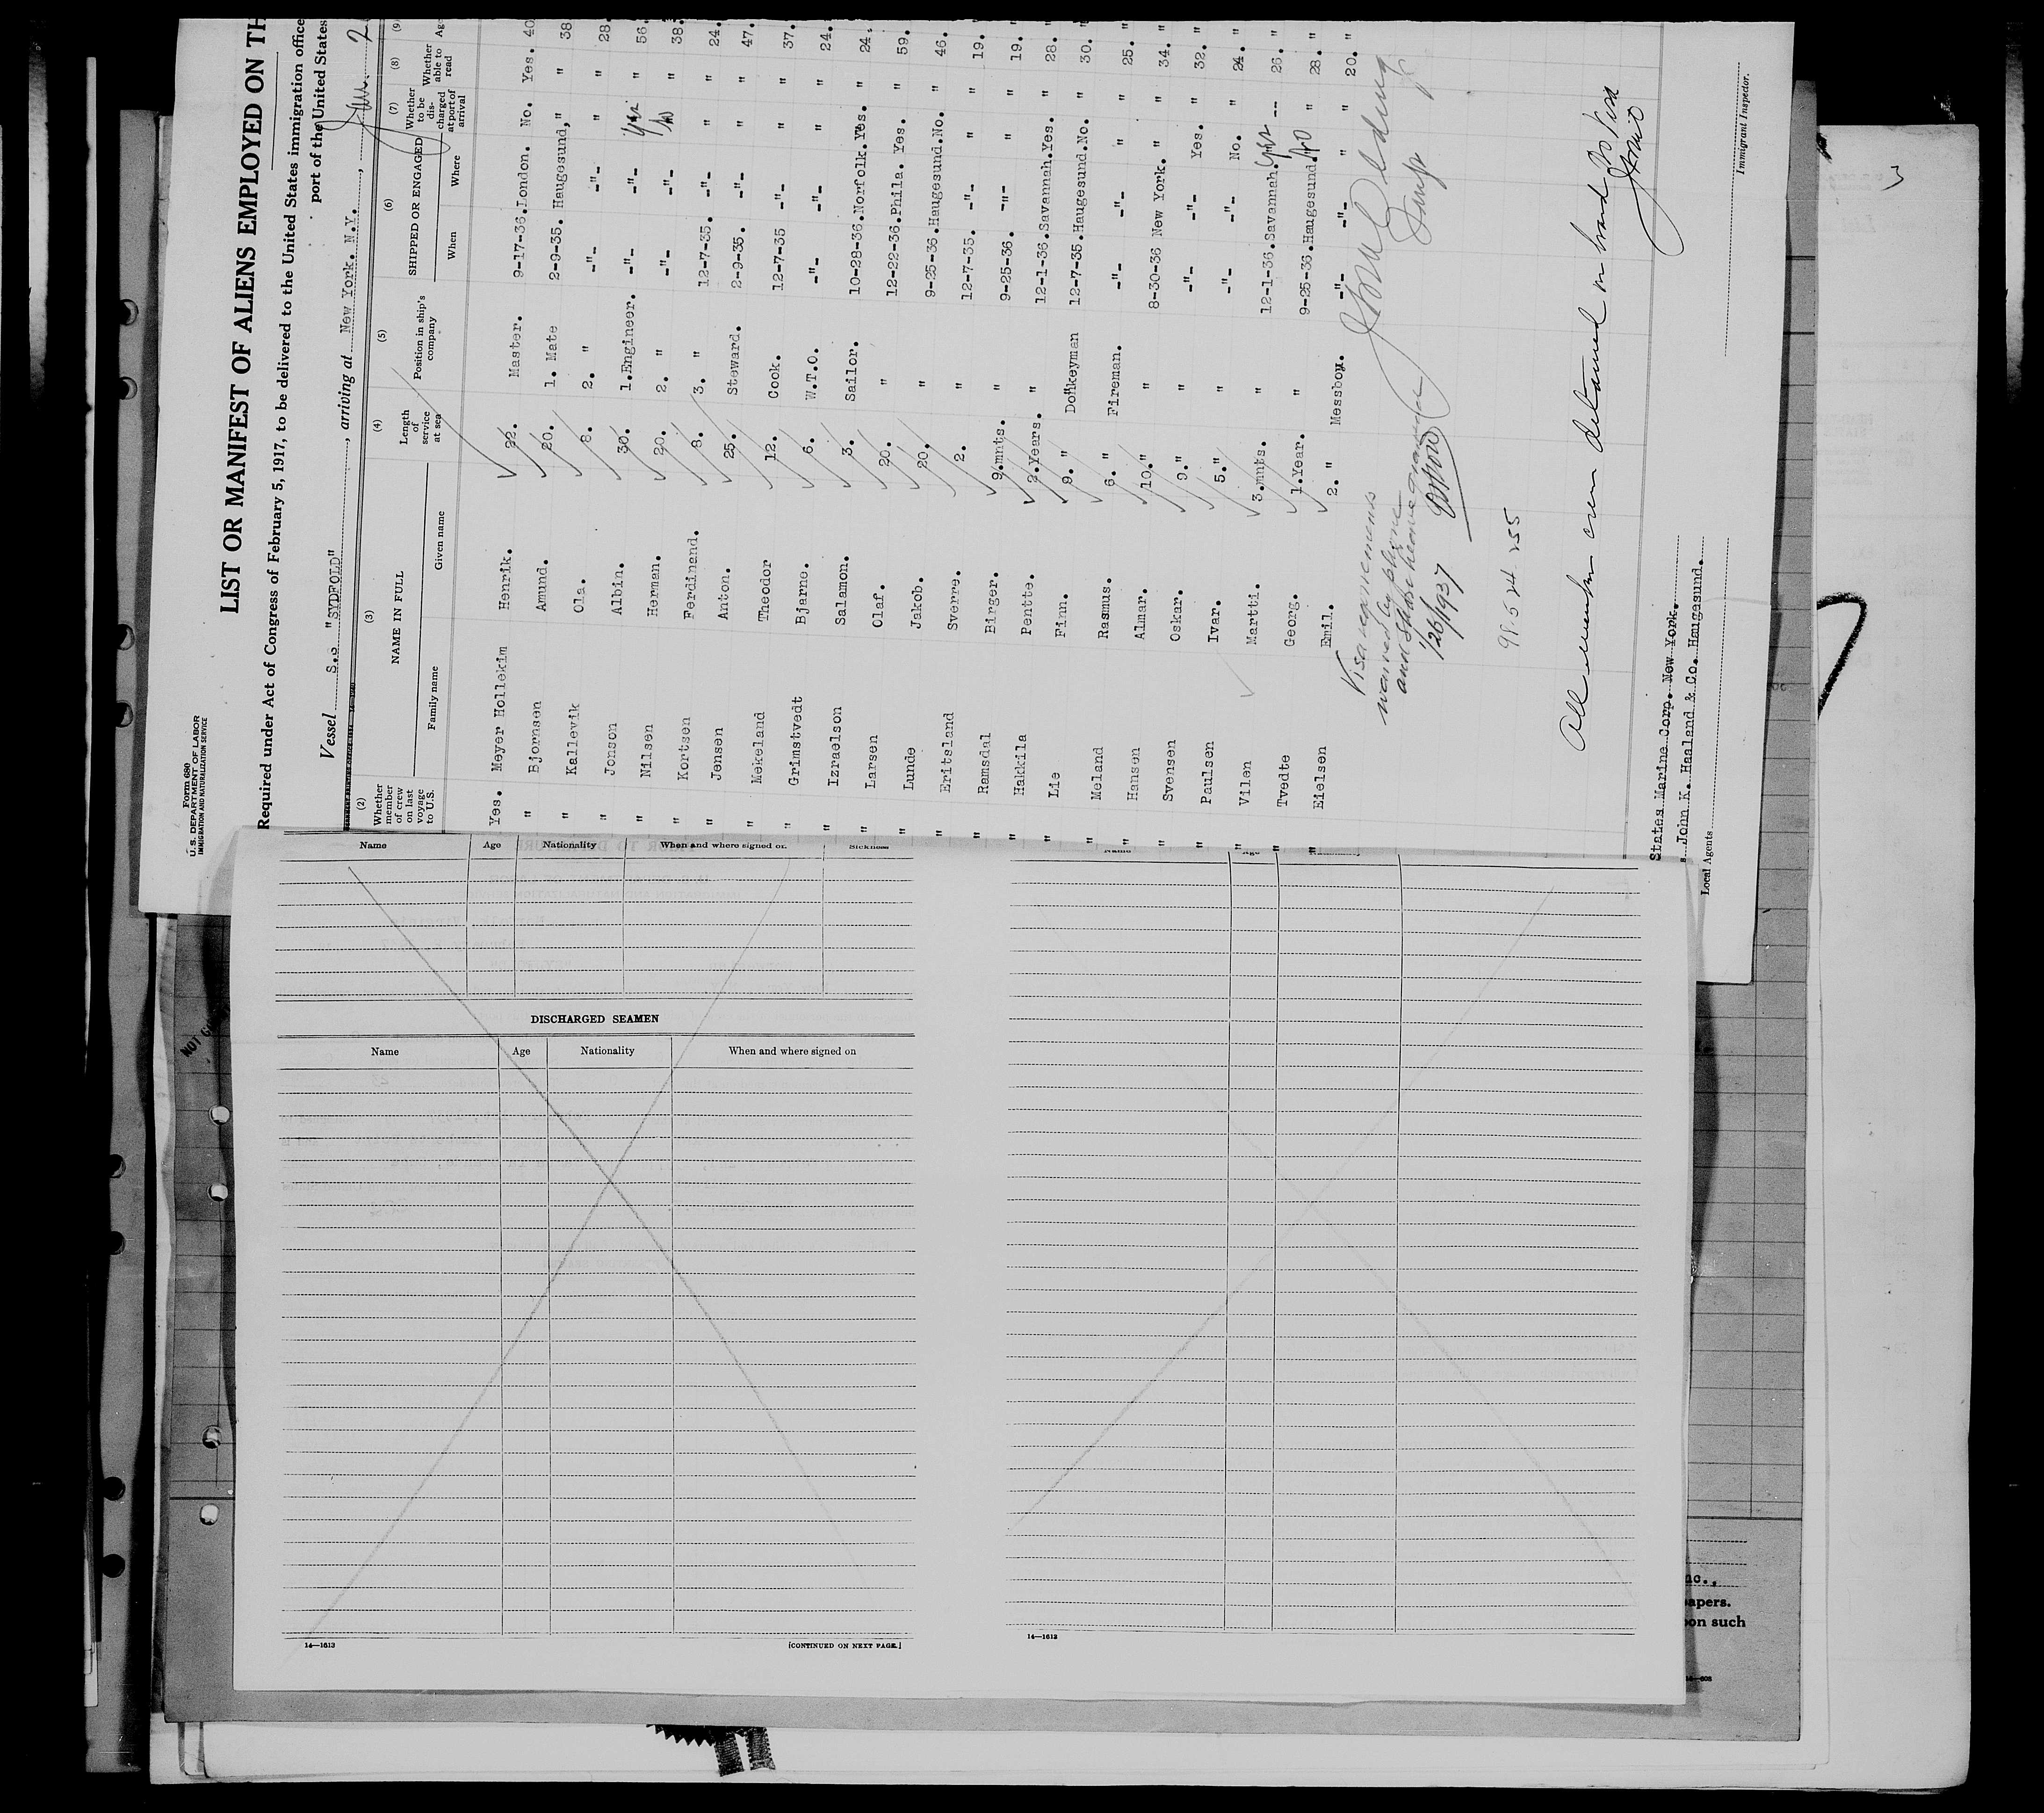 Form 680
U.S. DEPARTMENT OF LABOR
IMMIGRATION AND NATURALIZATION SERVICE
LIST OR MANIFEST OF ALIENS EMPLOYED ON TH
Required under Act of Congress of February 5, 1917, to be delivered to the United States immigration office
port of the United States
Vessel S.S "SYDFOLD", arriving at New York. N.Y., Jan. 2
(2) (3) (4) (5) (6) (7) (8) (9)
Whether member of crew on last voyage to U.S. NAME IN FULL Length of service at sea Position in ship's company SHIPPED OR ENGAGED Whether to be discharged at port of arrival Whether able to read Ag
Family name Given name When Where
Yes. Meyer Hollekim Henrik. 22. Master. 9-17-36. London. No. Yes. 40
" Bjornsen Amund. 20. 1. Mate 2-9-35. Haugesund, " " 38.
" Kallevik Ola. 8. 2. " -"- -"- " " 28.
" Jonson Albin. 30. 1.Engineer. -"- -"- Yes " 56.
" Nilsen Herman. 20. 2. " -"- -"- No " 38.
" Kortsen Ferdinand. 8. 3. " 12-7-35. -"- " " 24.
" Jensen Anton. 25. Steward. 2-9-35. -"- " " 47.
" Mekeland Theodor 12. Cook. 12-7-35 -"- " " 37.
" Grimstvedt Bjarne. 6. W.T.O. -"- -"- " " 24.
" Izraelson Salamon. 3. Sailor. 10-28-36. Norfolk. Yes. " 24.
" Larsen Olaf. 20. " 12-22-36. Phila. Yes. " 59.
" Lunde Jakob. 20. " 9-25-36. Haugesund. No. " 46.
" Eritsland Sverre. 2. " 12-7-35. -"- " " 19.
" Ramsdal Birger. 9.mnts. " 9-25-36. -"- " " 19.
" Hakkila Pentte. 2.Years. " 12-1-36. Savannah. Yes. " 28. "
" Lie Finn. 9. " Donkeyman 12-7-35. Haugesund. No. " 30. "
" Meland Rasmus. 6. " Fireman. -"- -"- " " 25. "
" Hansen Almar. 10." " 8-30-36 New York. " " 34. "
" Svensen Oskar. 9." " -"- -"- Yes. " 32. "
" Paulsen Ivar. 5." " -"- -"- No. " 24. "
" Vilen Martti. 3.mnts. " 12-1-36. Savannah. Yes -- 26. "
" Tvedte Georg. 1.Year. " 9-25-36. Haugesund. No " 28. "
" Eielsen Emil. 2." Messboy. -"- -"- " " 20. "
Visa requirements
waived by phone
1/26/1937
98524 255
All members crew detained on board No Visa
States Marine Corp. New York.
John K. Haaland & Co. Haugesund.
Local Agents
Immigrant Inspector.
Name Age Nationality When and where signed on Sickness
DISCHARGED SEAMEN
Name Age Nationality When and where signed on
14—1613 [CONTINUED ON NEXT PAGE.]
14—1613
NOT
nc.,
apers.
pon such